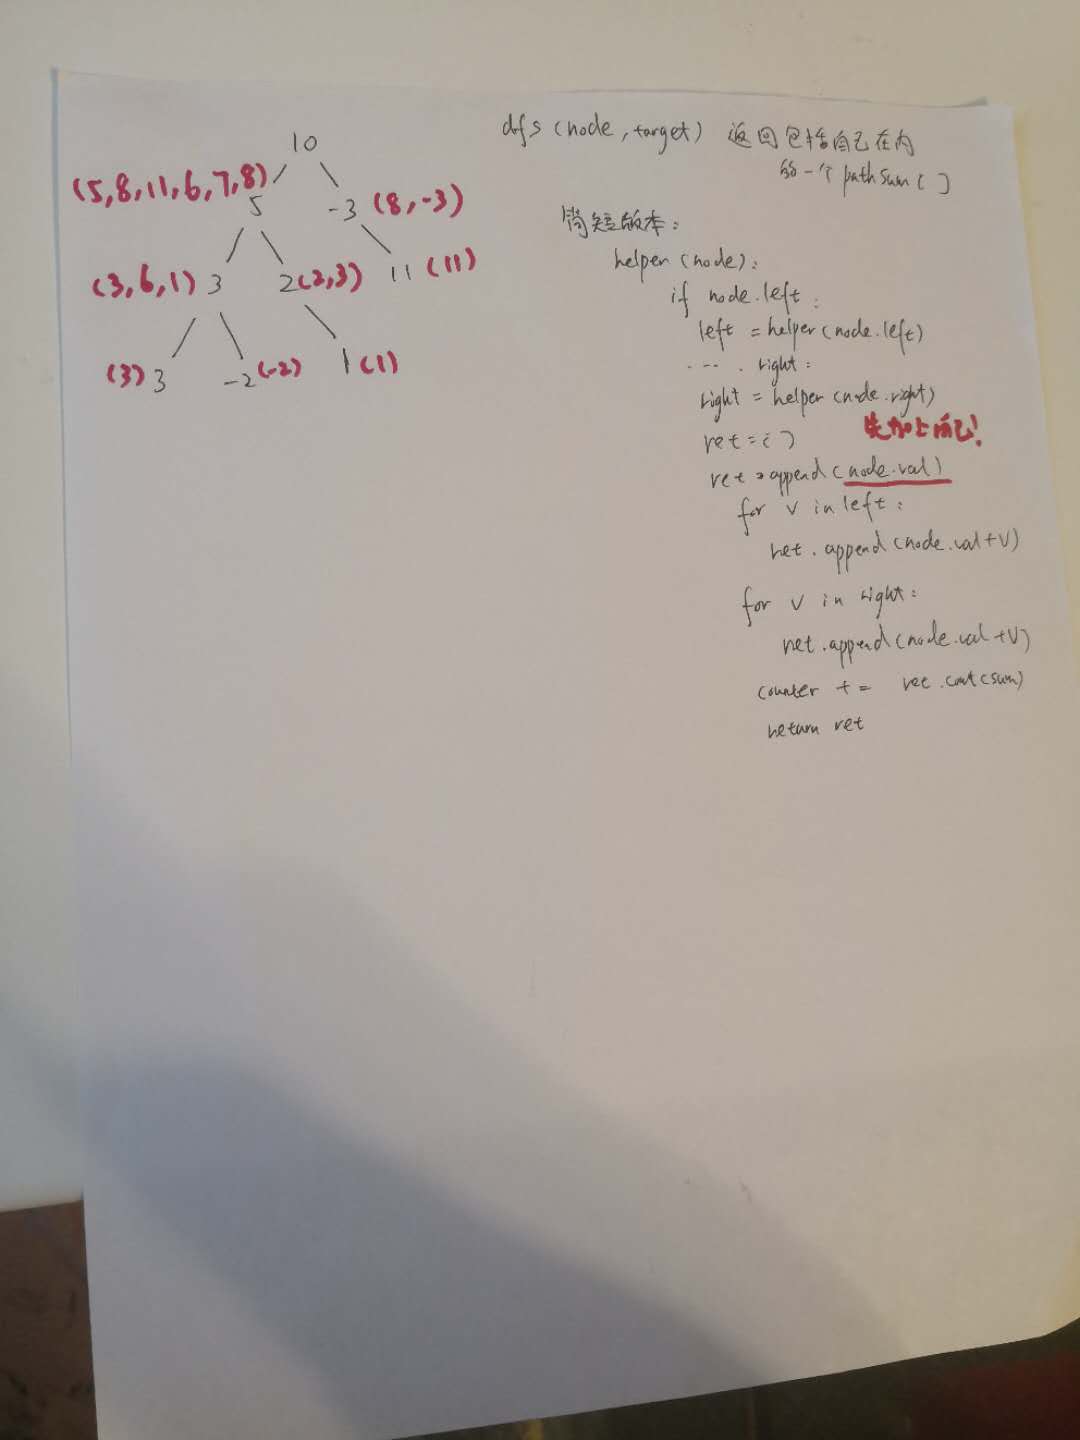 10
(5,8,11,6,7,8)
5
-3 (8,-3)
(3,6,1) 3
2(2,3)
11 (11)
(3) 3
-2(-2)
1(1)
dfs(node,target) 返回包括自己在内
的一个pathsum[]
简短版本:
helper(node):
if node.left:
left = helper(node.left)
.... right:
right = helper(node.right)
ret=[]
先加上自己!
ret.append(node.val)
for v in left:
ret.append(node.val+v)
for v in right:
ret.append(node.val+v)
counter += ret.cout(sum)
return ret